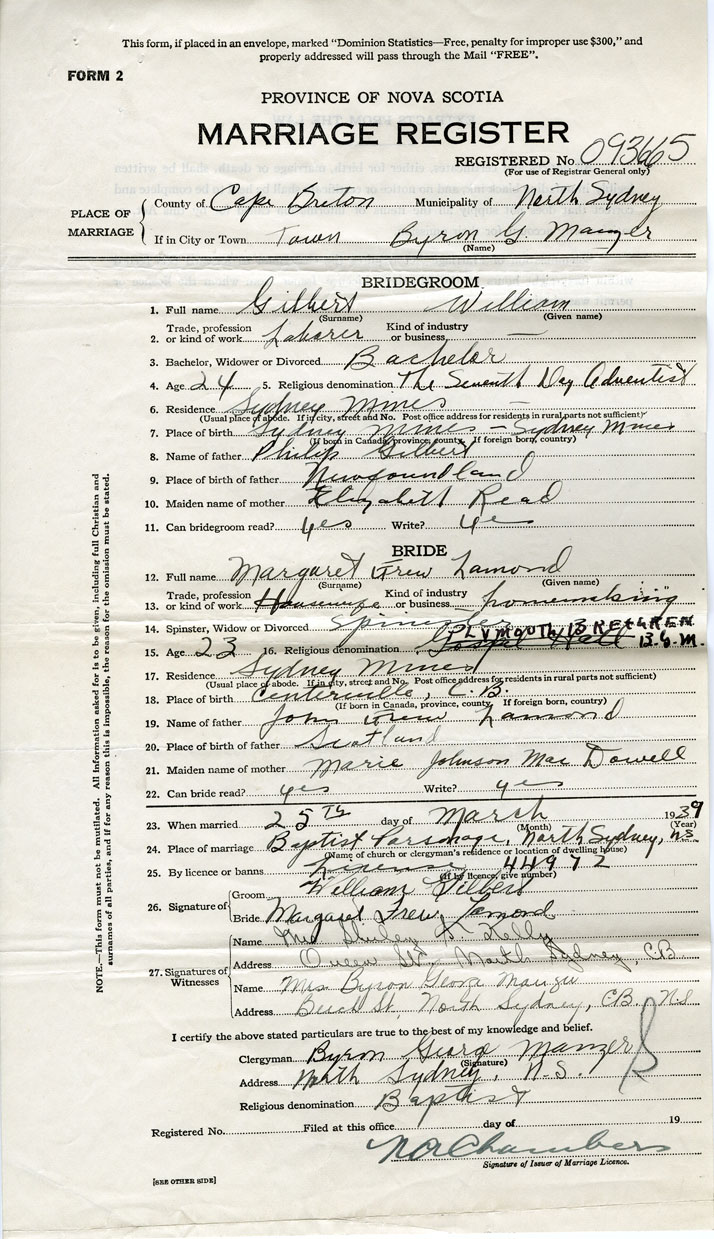 This form, if placed in an envelope, marked "Dominion Statistics—Free, penalty for improper use $300," and
properly addressed will pass through the Mail "FREE".
FORM 2
PROVINCE OF NOVA SCOTIA
MARRIAGE REGISTER
REGISTERED No 093665
(For use of Registrar General only)
PLACE OF MARRIAGE
County of Cape Breton Municipality of North Sydney
If in City or Town Town Byron G. Manzer
(Name)
BRIDEGROOM
1. Full name Gilbert William
(Surname) (Given name)
2. Trade, profession or kind of work Laborer Kind of industry or business —
3. Bachelor, Widower or Divorced Bachelor
4. Age 24 5. Religious denomination The Seventh Day Adventist
6. Residence Sydney Mines
(Usual place of abode. If in city, street and No. Post office address for residents in rural parts not sufficient)
7. Place of birth Sydney Mines — Sydney Mines
(If born in Canada, province, county. If foreign born, country)
8. Name of father Philip Gilbert
9. Place of birth of father Newfoundland
10. Maiden name of mother Elizabeth Read
11. Can bridegroom read? yes Write? yes
BRIDE
12. Full name Margaret Frew Lamond
(Surname) (Given name)
13. Trade, profession or kind of work Housewife Kind of industry or business homemaking
14. Spinster, Widow or Divorced Spinster
PLYMOUTH BRETHREN
15. Age 23 16. Religious denomination Gospel Hall B.G.M.
17. Residence Sydney Mines
(Usual place of abode. If in city, street and No. Post office address for residents in rural parts not sufficient)
18. Place of birth Centerville, C.B.
(If born in Canada, province, county. If foreign born, country)
19. Name of father John Frew Lamond
20. Place of birth of father Scotland
21. Maiden name of mother Marie Johnson MacDowell
22. Can bride read? yes Write? yes
23. When married 25TH day of March 1939
(Month) (Year)
24. Place of marriage Baptist Parsonage, North Sydney, N.S.
(Name of church or clergyman's residence or location of dwelling house)
25. By licence or banns License 44972
(If by licence, give number)
26. Signature of
Groom William Gilbert
Bride Margaret Frew Lamond
27. Signatures of Witnesses
Name Mrs Shirley Kelly
Address Queen St. North Sydney, C.B.
Name Mrs. Byron George Manzer
Address Beech St, North Sydney, C.B. N.S
I certify the above stated particulars are true to the best of my knowledge and belief.
Clergyman Byron George Manzer
(Signature)
Address North Sydney, N.S.
Religious denomination Baptist
Registered No. Filed at this office day of 19
Chambers
Signature of Issuer of Marriage Licence.
[SEE OTHER SIDE]
NOTE.—This form must not be mutilated. All information asked for is to be given, including full Christian and
surnames of all parties, and if for any reason this is impossible, the reason for the omission must be stated.